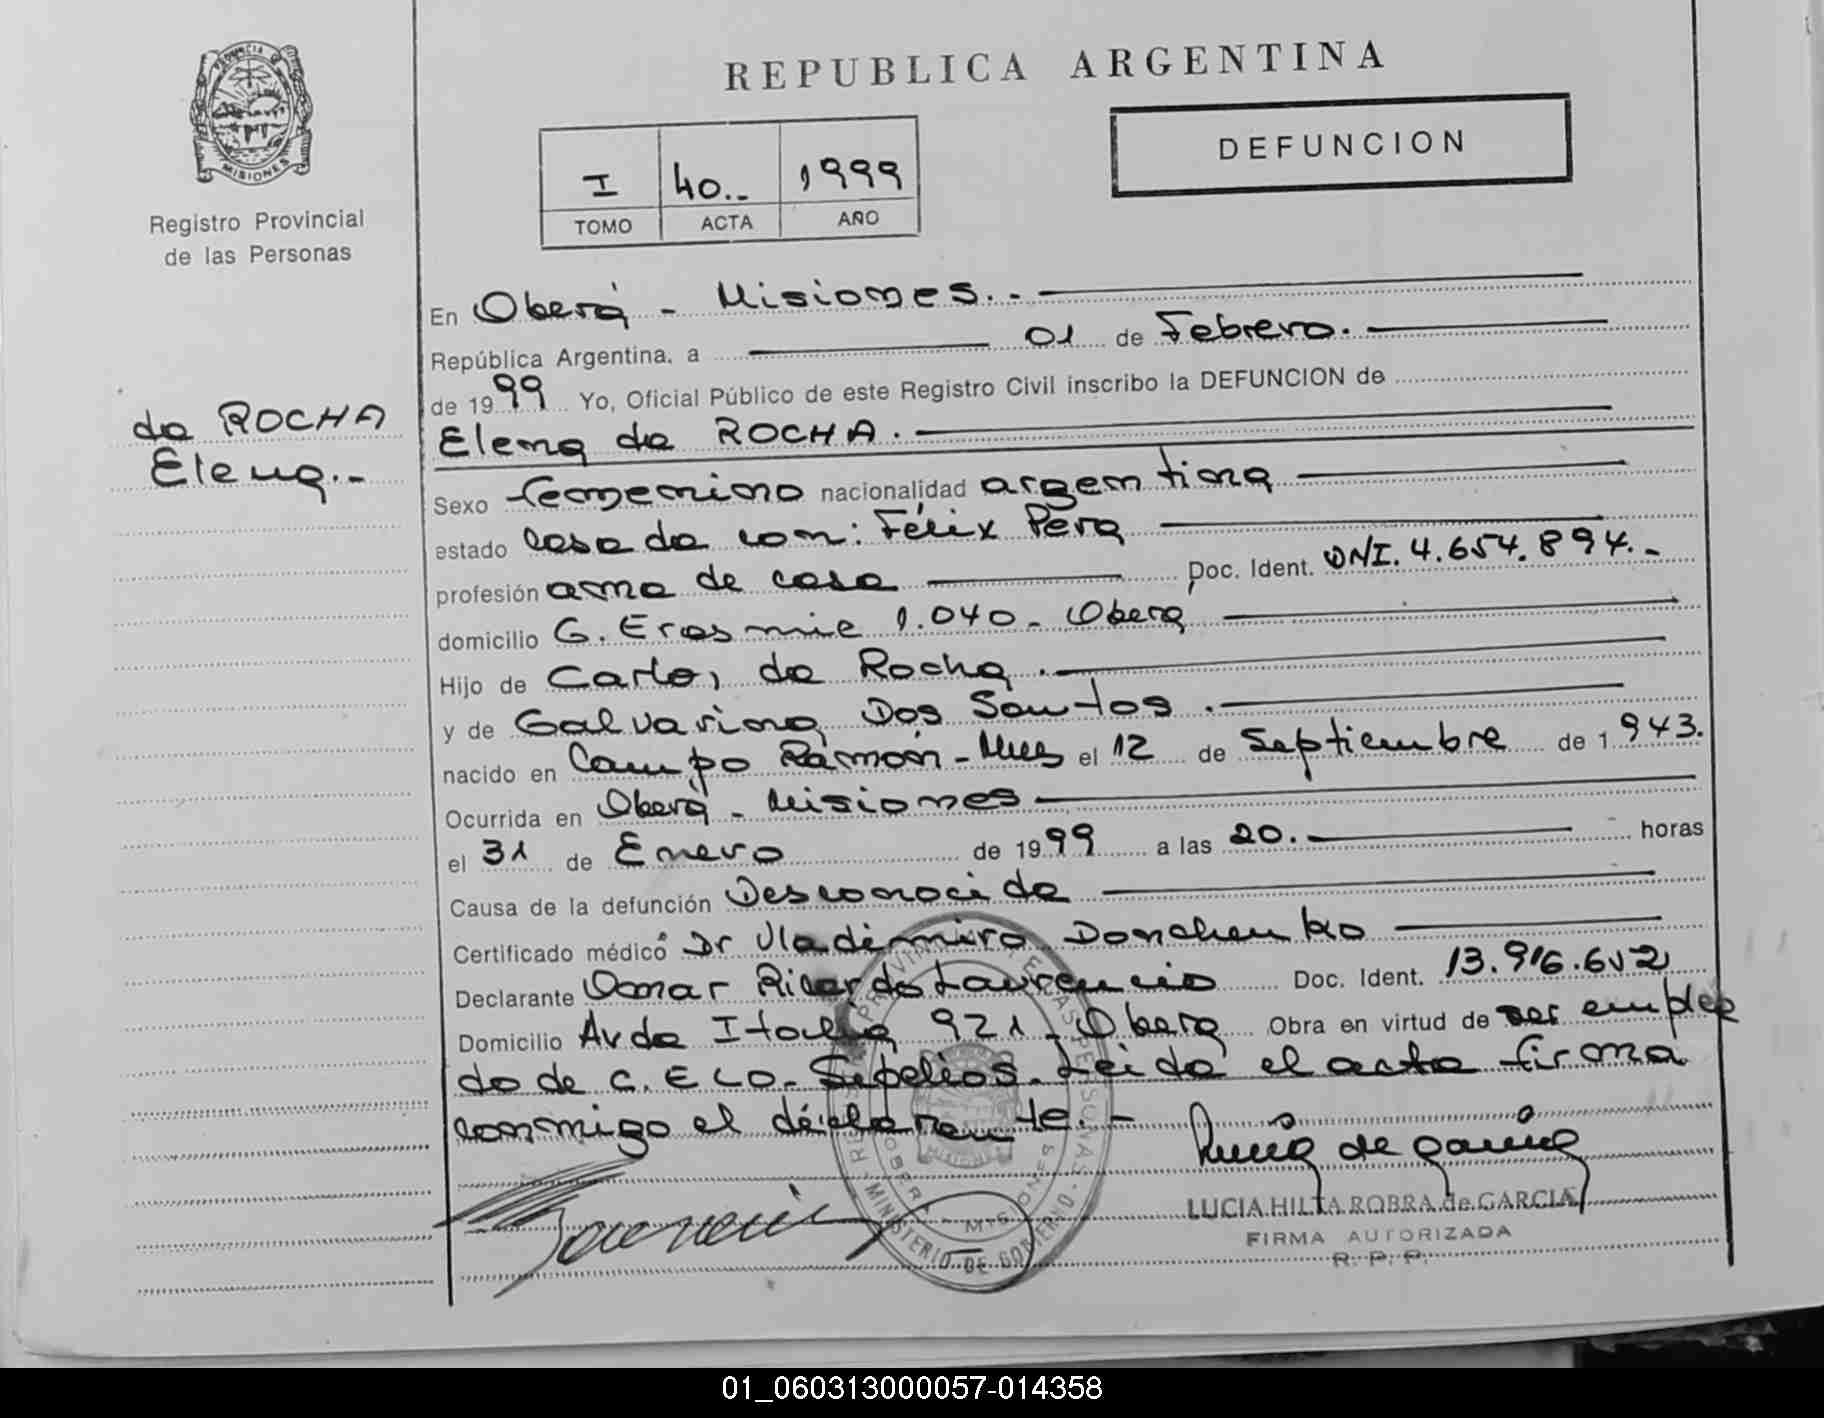 PROVINCIA DE
MISIONES
Registro Provincial
de las Personas
da ROCHA
Elena.-
REPUBLICA ARGENTINA
DEFUNCION
I 40.- 1999
TOMO ACTA AÑO
En Oberá - Misiones.-
República Argentina, a 01 de Febrero.
de 1999 Yo, Oficial Público de este Registro Civil inscribo la DEFUNCION de
Elena da ROCHA.
Sexo femenino nacionalidad argentina
estado casada con: Félix Pera
profesión ama de casa Doc. Ident. DNI. 4.654.894.-
domicilio G. Erasmie 1.040- Obera
Hijo de Carlos da Rocha.
y de Galvarina Dos Santos.
nacido en Campo Ramón-Mnes el 12 de Septiembre de 1943.
Ocurrida en Oberá - Misiones
el 31 de Enero de 1999 a las 20. horas
Causa de la defunción Desconocida
Certificado médico Dr Vladimiro Donchenko
Declarante Omar Ricardo Laurencio Doc. Ident. 13.916.652
Domicilio Avda Italia 921 - Obera Obra en virtud de ser emplea
do de C.ELO- Sepelios. Leida el acta firma
conmigo el declarante.-
MINISTERIO DE GOBIERNO
OBERA - MISIONES
LUCIA HILTA ROBRA de GARCIA
FIRMA AUTORIZADA
R. P. P.
01_060313000057-014358